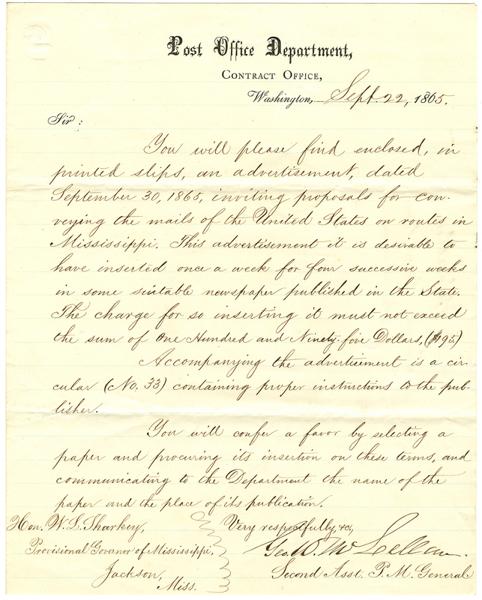 Post Office Department,
Contract Office,
Washington, Sept. 22, 1865.
Sir:
You will please find enclosed, in
printed slips, an advertisement, dated
September 30, 1865, inviting proposals for con-
veying the mails of the United States on routes in
Mississippi. This advertisement it is desirable to
have inserted once a week for four successive weeks
in some suitable newspaper published in the State.
The charge for so inserting it must not exceed
the sum of One Hundred and Ninety five Dollars, ($195)
Accompanying the advertisement is a cir-
cular (No. 33) containing proper instructions to the pub-
lisher.
You will confer a favor by selecting a
paper and procuring its insertion on these terms, and
communicating to the Department the name of the
paper and the place of its publication.
Hon. W. L. Sharkey,
Provisional Govenor of Mississippi,
Jackson,
Miss.
Very respectfully, &c,
Geo. W. McLellan
Second Asst. P. M. General